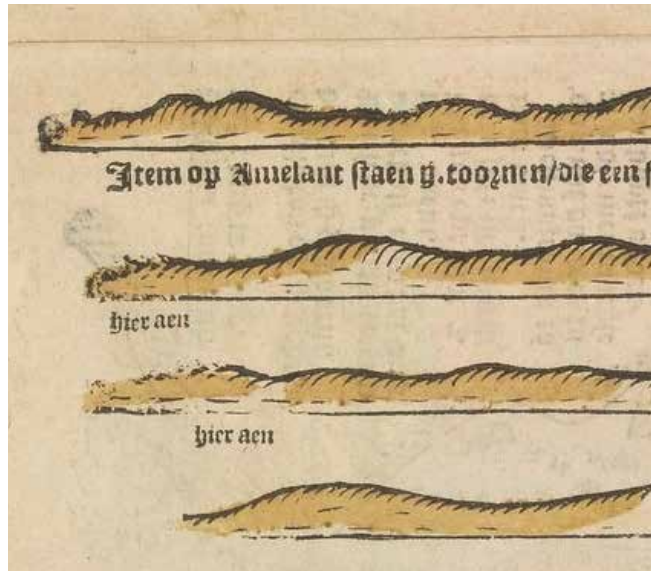 Item op Amelant staen ij. toornen/die een
hier aen
hier aen